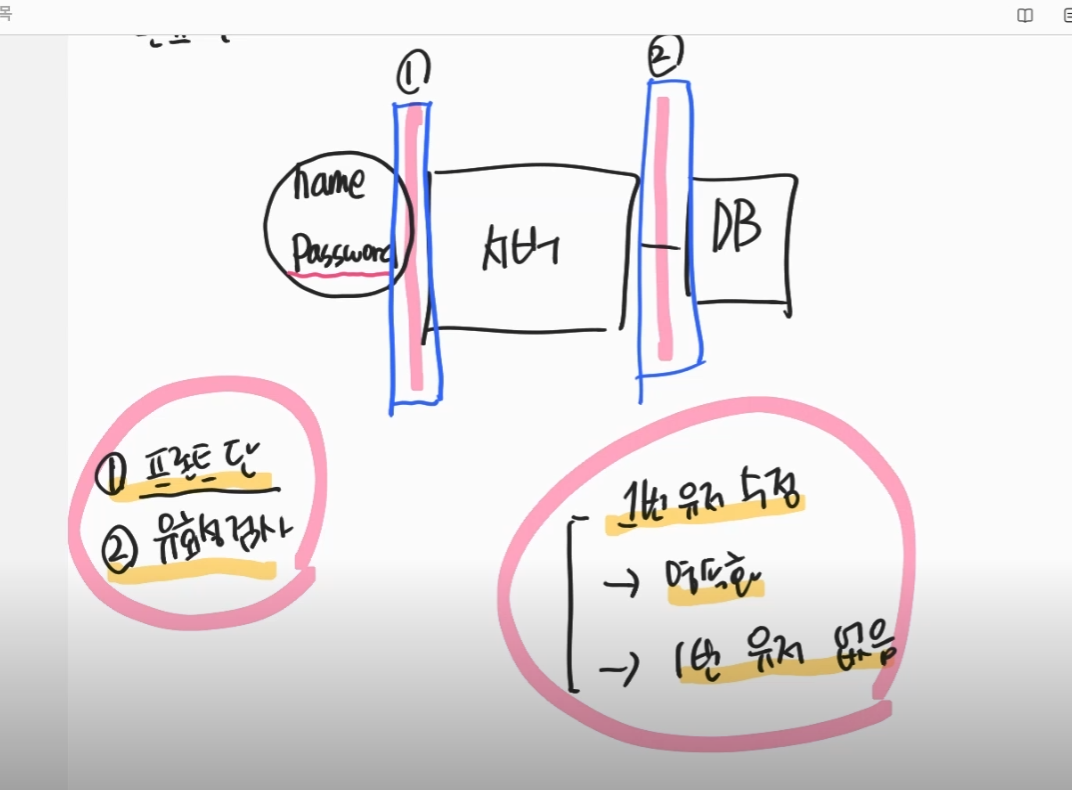 목
①
②
name
Password
서버
DB
① 프론트 단
② 유효성 검사
1번 유저 수정
→ 명확한
→ 1번 유저 없음